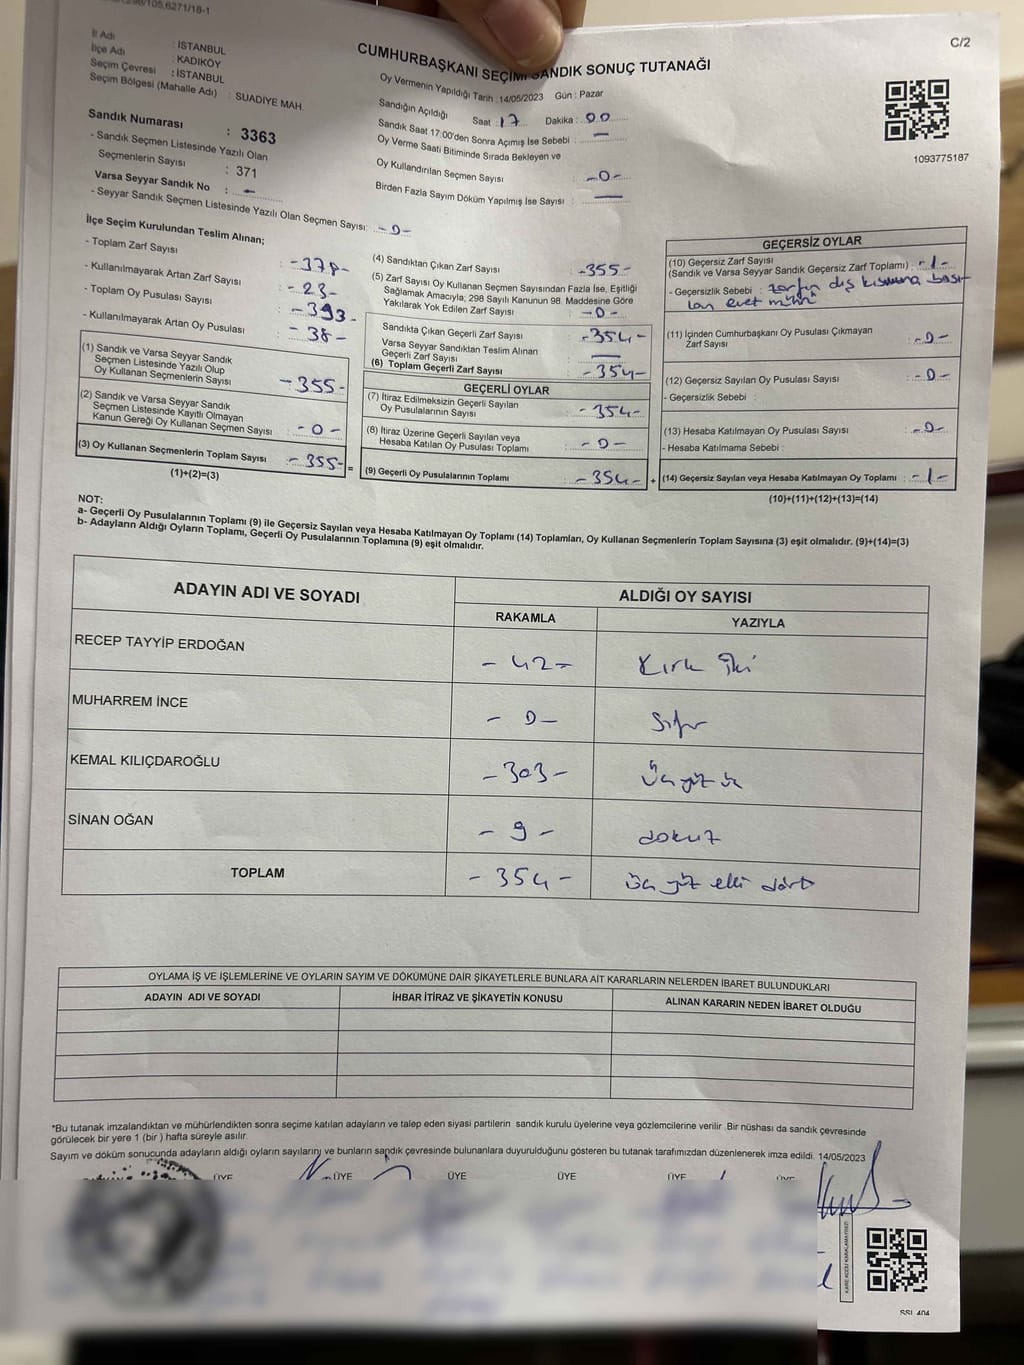 298/105,6271/18-1
C/2
İl Adı : İSTANBUL
İlçe Adı : KADIKÖY
Seçim Çevresi : İSTANBUL
Seçim Bölgesi (Mahalle Adı) : SUADİYE MAH.
Sandık Numarası : 3363
- Sandık Seçmen Listesinde Yazılı Olan
Seçmenlerin Sayısı : 371
Varsa Seyyar Sandık No : -
- Seyyar Sandık Seçmen Listesinde Yazılı Olan Seçmen Sayısı: -0-
CUMHURBAŞKANI SEÇİMİ SANDIK SONUÇ TUTANAĞI
Oy Vermenin Yapıldığı Tarih : 14/05/2023 Gün : Pazar
Sandığın Açıldığı Saat : 17 Dakika : 00
Sandık Saat 17:00'den Sonra Açımış İse Sebebi : —
Oy Verme Saati Bitiminde Sırada Bekleyen ve
Oy Kullandırılan Seçmen Sayısı : -0-
Birden Fazla Sayım Döküm Yapılmış İse Sayısı : —
1093775187
İlçe Seçim Kurulundan Teslim Alınan;
- Toplam Zarf Sayısı : -378-
- Kullanılmayarak Artan Zarf Sayısı : -23-
- Toplam Oy Pusulası Sayısı : -393-
- Kullanılmayarak Artan Oy Pusulası : -38-
(1) Sandık ve Varsa Seyyar Sandık
Seçmen Listesinde Yazılı Olup
Oy Kullanan Seçmenlerin Sayısı : -355-
(2) Sandık ve Varsa Seyyar Sandık
Seçmen Listesinde Kayıtlı Olmayan
Kanun Gereği Oy Kullanan Seçmen Sayısı : -0-
(3) Oy Kullanan Seçmenlerin Toplam Sayısı : -355- =
(1)+(2)=(3)
(4) Sandıktan Çıkan Zarf Sayısı : -355-
(5) Zarf Sayısı Oy Kullanan Seçmen Sayısından Fazla İse, Eşitliği
Sağlamak Amacıyla; 298 Sayılı Kanunun 98. Maddesine Göre
Yakılarak Yok Edilen Zarf Sayısı : -0-
Sandıkta Çıkan Geçerli Zarf Sayısı : -354-
Varsa Seyyar Sandıktan Teslim Alınan
Geçerli Zarf Sayısı : —
(6) Toplam Geçerli Zarf Sayısı : -354-
GEÇERLİ OYLAR
(7) İtiraz Edilmeksizin Geçerli Sayılan
Oy Pusulalarının Sayısı : -354-
(8) İtiraz Üzerine Geçerli Sayılan veya
Hesaba Katılan Oy Pusulası Toplamı : -0-
(9) Geçerli Oy Pusulalarının Toplamı : -354- +
GEÇERSİZ OYLAR
(10) Geçersiz Zarf Sayısı
(Sandık ve Varsa Seyyar Sandık Geçersiz Zarf Toplamı) : -1-
- Geçersizlik Sebebi : zarfın dış kısmına bası-
lan evet mührü
(11) İçinden Cumhurbaşkanı Oy Pusulası Çıkmayan
Zarf Sayısı : -0-
(12) Geçersiz Sayılan Oy Pusulası Sayısı : -0-
- Geçersizlik Sebebi :
(13) Hesaba Katılmayan Oy Pusulası Sayısı : -0-
- Hesaba Katılmama Sebebi :
(14) Geçersiz Sayılan veya Hesaba Katılmayan Oy Toplamı : -1-
(10)+(11)+(12)+(13)=(14)
NOT:
a- Geçerli Oy Pusulalarının Toplamı (9) ile Geçersiz Sayılan veya Hesaba Katılmayan Oy Toplamı (14) Toplamları, Oy Kullanan Seçmenlerin Toplam Sayısına (3) eşit olmalıdır. (9)+(14)=(3)
b- Adayların Aldığı Oyların Toplamı, Geçerli Oy Pusulalarının Toplamına (9) eşit olmalıdır.
ADAYIN ADI VE SOYADI
ALDIĞI OY SAYISI
RAKAMLA YAZIYLA
RECEP TAYYİP ERDOĞAN -42- Kırk iki
MUHARREM İNCE -0- Sıfır
KEMAL KILIÇDAROĞLU -303- Üç yüz üç
SİNAN OĞAN -9- dokuz
TOPLAM -354- üç yüz elli dört
OYLAMA İŞ VE İŞLEMLERİNE VE OYLARIN SAYIM VE DÖKÜMÜNE DAİR ŞİKAYETLERLE BUNLARA AİT KARARLARIN NELERDEN İBARET BULUNDUKLARI
ADAYIN ADI VE SOYADI İHBAR İTİRAZ VE ŞİKAYETİN KONUSU ALINAN KARARIN NEDEN İBARET OLDUĞU
*Bu tutanak imzalandıktan ve mühürlendikten sonra seçime katılan adayların ve talep eden siyasi partilerin sandık kurulu üyelerine veya gözlemcilerine verilir. Bir nüshası da sandık çevresinde
görülecek bir yere 1 (bir ) hafta süreyle asılır.
Sayım ve döküm sonucunda adayların aldığı oyların sayılarını ve bunların sandık çevresinde bulunanlara duyurulduğunu gösteren bu tutanak tarafımızdan düzenlenerek imza edildi. 14/05/2023
ÜYE ÜYE ÜYE ÜYE ÜYE ÜYE